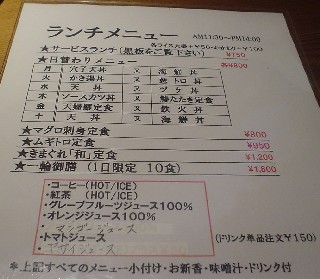 ランチメニュー AM11:30~PM14:00
★サービスランチ(黒板をご覧下さい) ¥750
★日替わりメニュー 各¥800
月 穴子天丼 又は 海鮮丼
火 かき揚丼 又は ネギトロ丼
水 天丼 又は ヅケ丼
木 ソースカツ丼 又は 鉄火丼
金 又は 鰺たたき定食
土 天丼 又は 海鮮丼
★マグロ刺身定食 ¥900
★ムギトロ定食 ¥950
★きまぐれ「和」定食 ¥1,200
★一輪御膳 (1日限定 10食) ¥1,800
・コーヒー(HOT/ICE)
・紅茶 (HOT/ICE)
・グレープフルーツジュース100%
・オレンジジュース100%
マンゴージュース
・トマトジュース (ドリンク単品注文¥150)
・アサイージュース
*上記すべてのメニュー小付け・お新香・味噌汁・ドリンク付